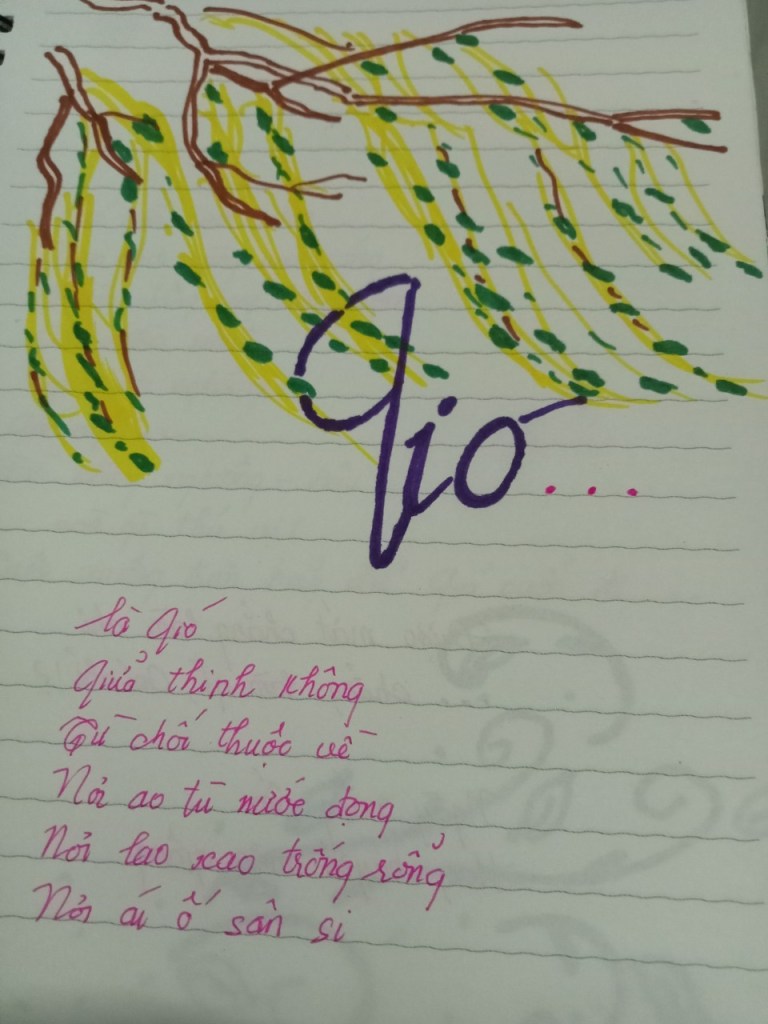 Gió...
là gió
Giữa thinh không
Từ chối thuộc về
Nơi ao tù nước đọng
Nơi lao xao trống rổng
Nơi ái ố sân si